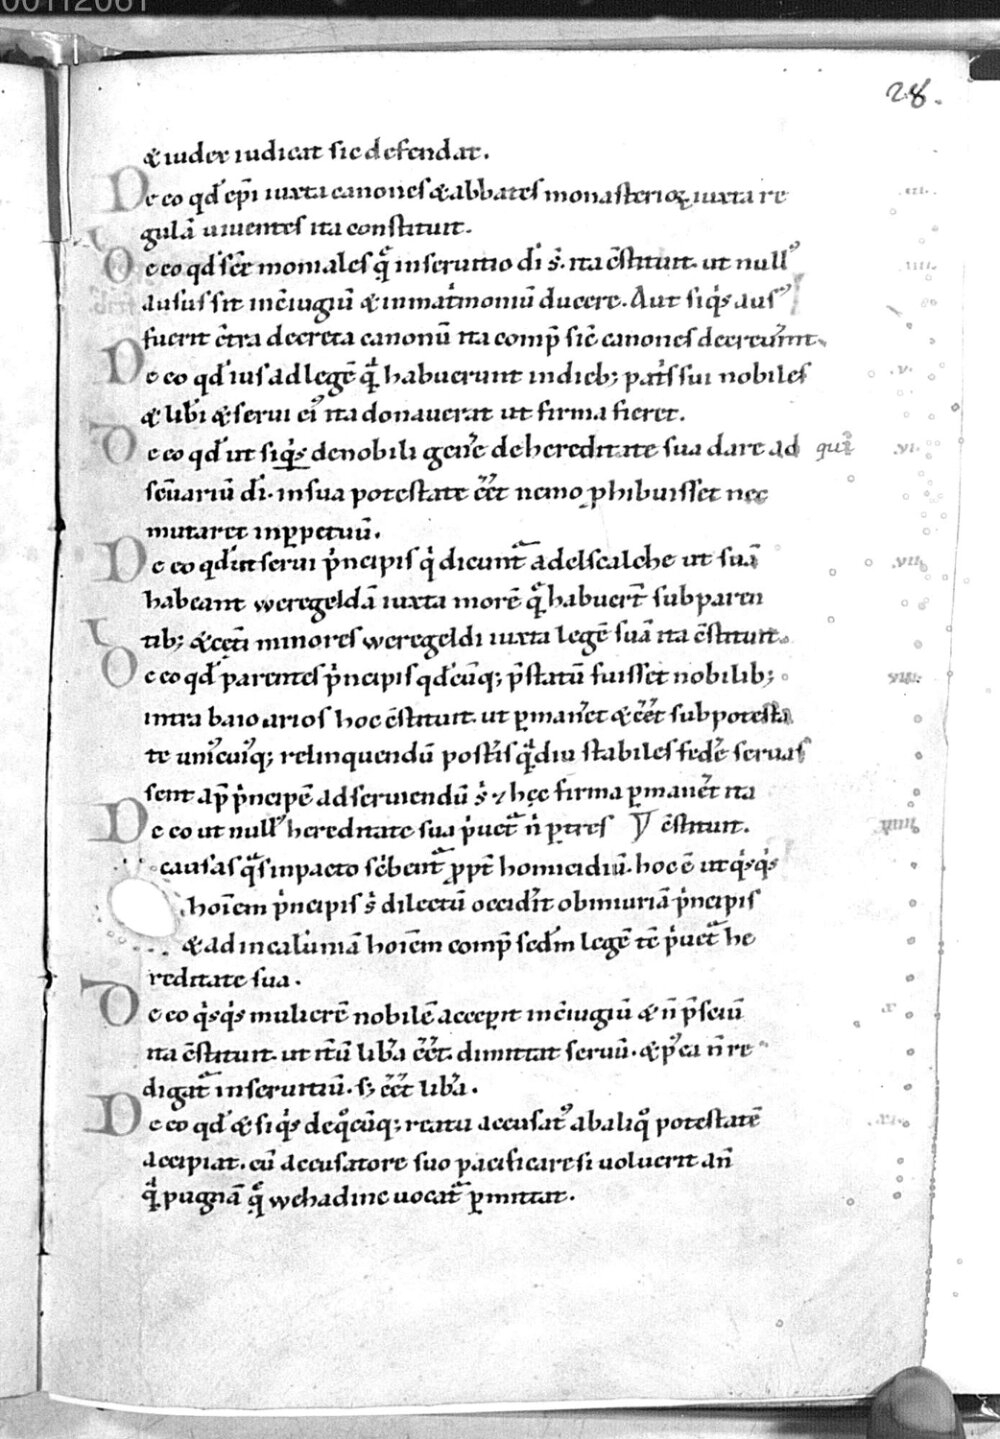 28.
& iudex iudicat sic defendat.
De eo qd̄ ep̄i iuxta canones & abbates monasterioꝝ iuxta re
gulā uiuentes ita constituit.
De eo qd̄ sc̄e moniales q̄ in seruitio dī s̄. ita c̄stituit. ut null᾽
ausus sit in c̄iugiū & in mat͛moniū ducere. Aut siq̄s aus᾽
fuerit c̄tra decreta canonū ita comp̄ sic̄ canones decreuer̄nt.
De eo qd̄ ius ad legē q̄ habuerunt in dieb; pat̄s sui nobiles
& lib̄i & serui ei᾽ ita donauerat ut firma fieret.
De eo qd̄ ut siq̄s de nobili gen̄e de hereditate sua dare ad
sēuariū dī. in sua potestate ēēt nemo ꝓhibuisset nec
mutaret inꝑpetuū.
De eo qd̄ ut serui p̄ncipis q̄ dicunt̄ adelscalche ut suā
habeant weregeldā iuxta morē q̄ habuer̄t sub paren
tib; & cęt̄i minores weregeldi iuxta legē suā ita c̄stituit.
De eo qd̄ parentes p̄ncipis qd̄cūq; p̄statū fuisset nobilib;
intra baiouarios hoc c̄stituit. ut ꝑman̄et & ēēt sub potesta
te uni᾽cui᾽q; relinquendū post̄is q̄diu stabiles fed̄e seruas
sent ap̄ p̄ncipē ad seruiendū s̄ ⁊ hęc firma ꝑman̄et ita
De eo ut null᾽ hereditate sua p̄uet̄ n̄ ꝑ tres c̄stituit.
causas q̄s in pacto sc̄bent̄ ꝓpt̄ homicidiū. hoc ē ut q̄sq̄s
hoīem p̄ncipis s̄ dilectū occid̄it ob iniuriā p̄ncipis
& ad in calūniā hoīem comp̄ sed̄m legē t̄e p̄uet̄ he
reditate sua.
De eo q̄sq̄s mulierē nobilē acceꝑit in c̄iugiū & n̄ p̄sciū
ita c̄stituit. ut it̄ū lib̄a ēēt. dimittat seruū. & p᾽ea n̄ re
digat̄ in seruitiū. s; ēēt lib̄a.
De eo qd̄ & siq̄s de q̄cūq; reatu accusat᾽ ab aliq̄ potestatē
accipiat. cū accusatore suo pacificare si uoluerit an̄
q̄ pugnā q̄ wehadinc uocat̄ ꝑmittat.